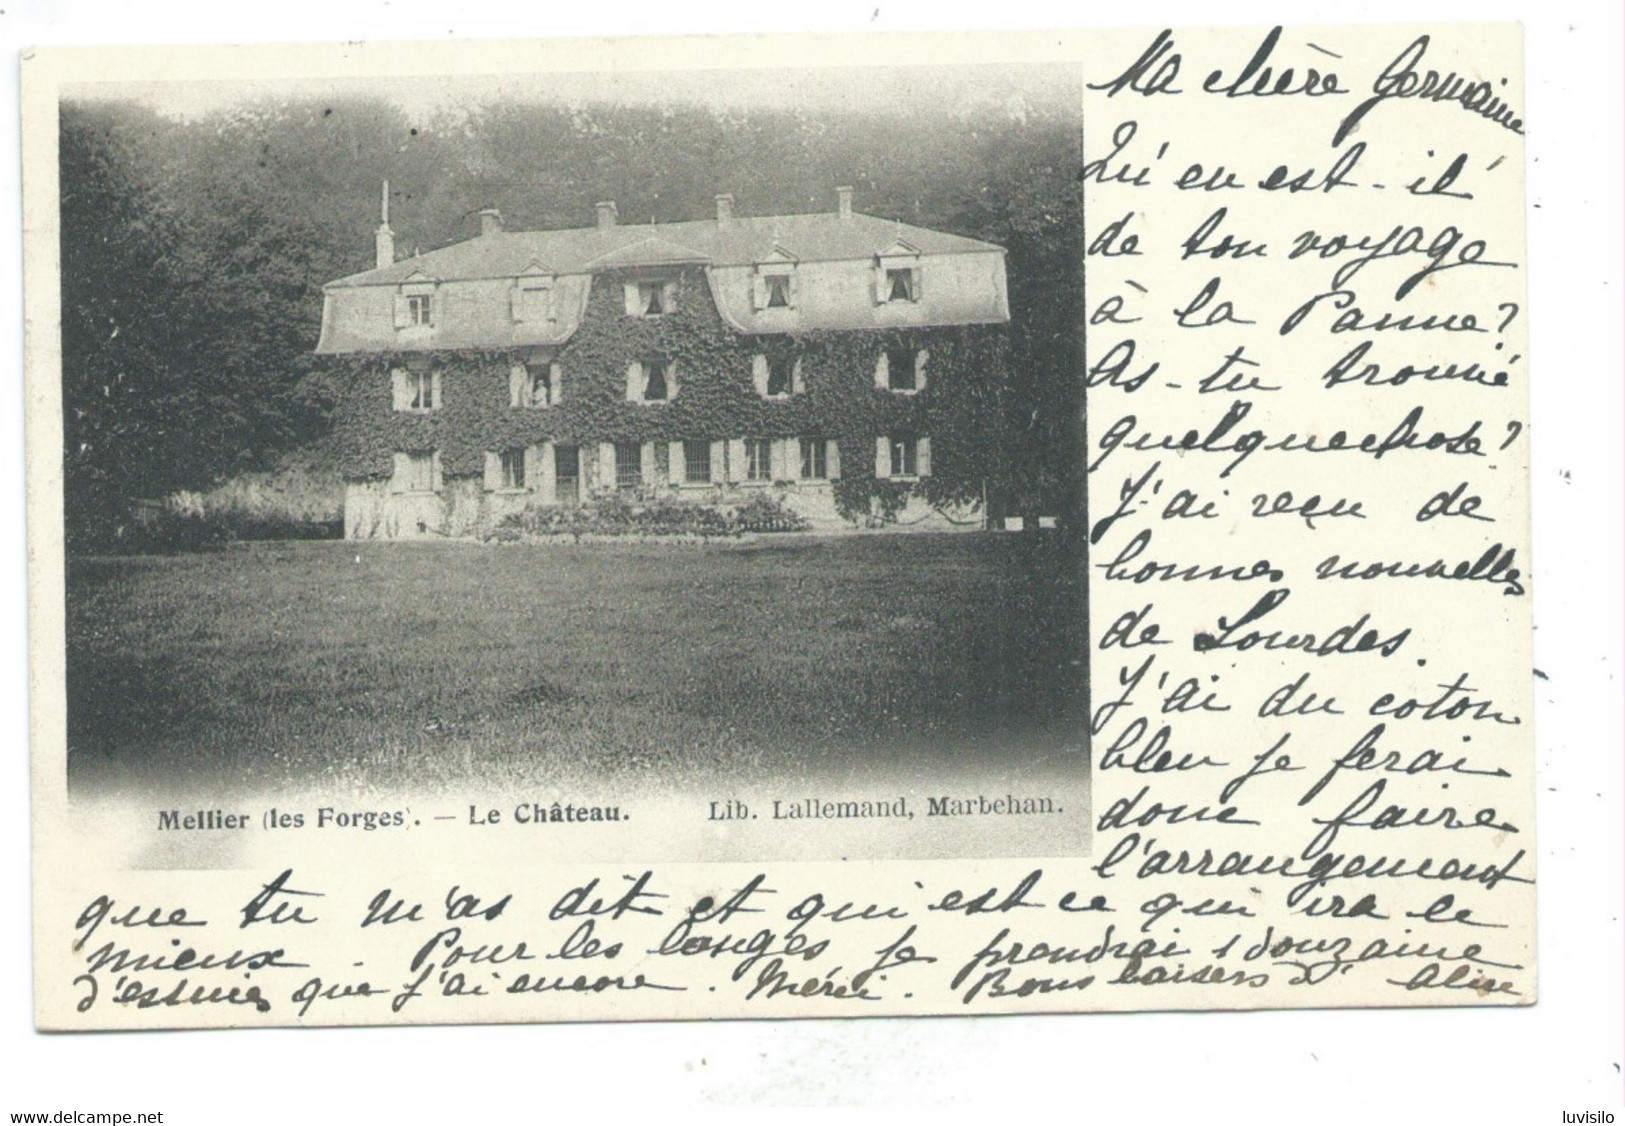 Ma chère Germaine
Qu'en est-il
de ton voyage
à la Panne?
As-tu trouvé
quelque chose?
J'ai reçu de
bonnes nouvelles
de Lourdes.
J'ai du coton
bleu je ferai
donc faire
l'arrangement
que tu m'as dit et qui est ce qui ira le
mieux. Pour les langes je prendrai 1 douzaine
d'essuies que j'ai encore. Merci. Bons baisers d'Aline
Mellier (les Forges). — Le Château. Lib. Lallemand, Marbehan.
www.delcampe.net
luvisilo